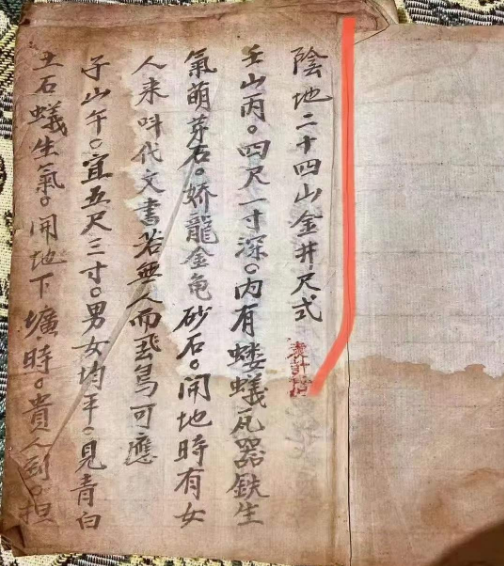 陰地二十四山金井尺式
壬山丙。四尺一寸深。内有螻蟻瓦器鉄生
氣萌芽石。娇龍金龟砂石。開地時有女
人来呌代文書若無人而飛鳥可應
子山午。宜五尺三寸。男女均平。見青白
土石蟻生氣。開地下壙。時。貴人到。担